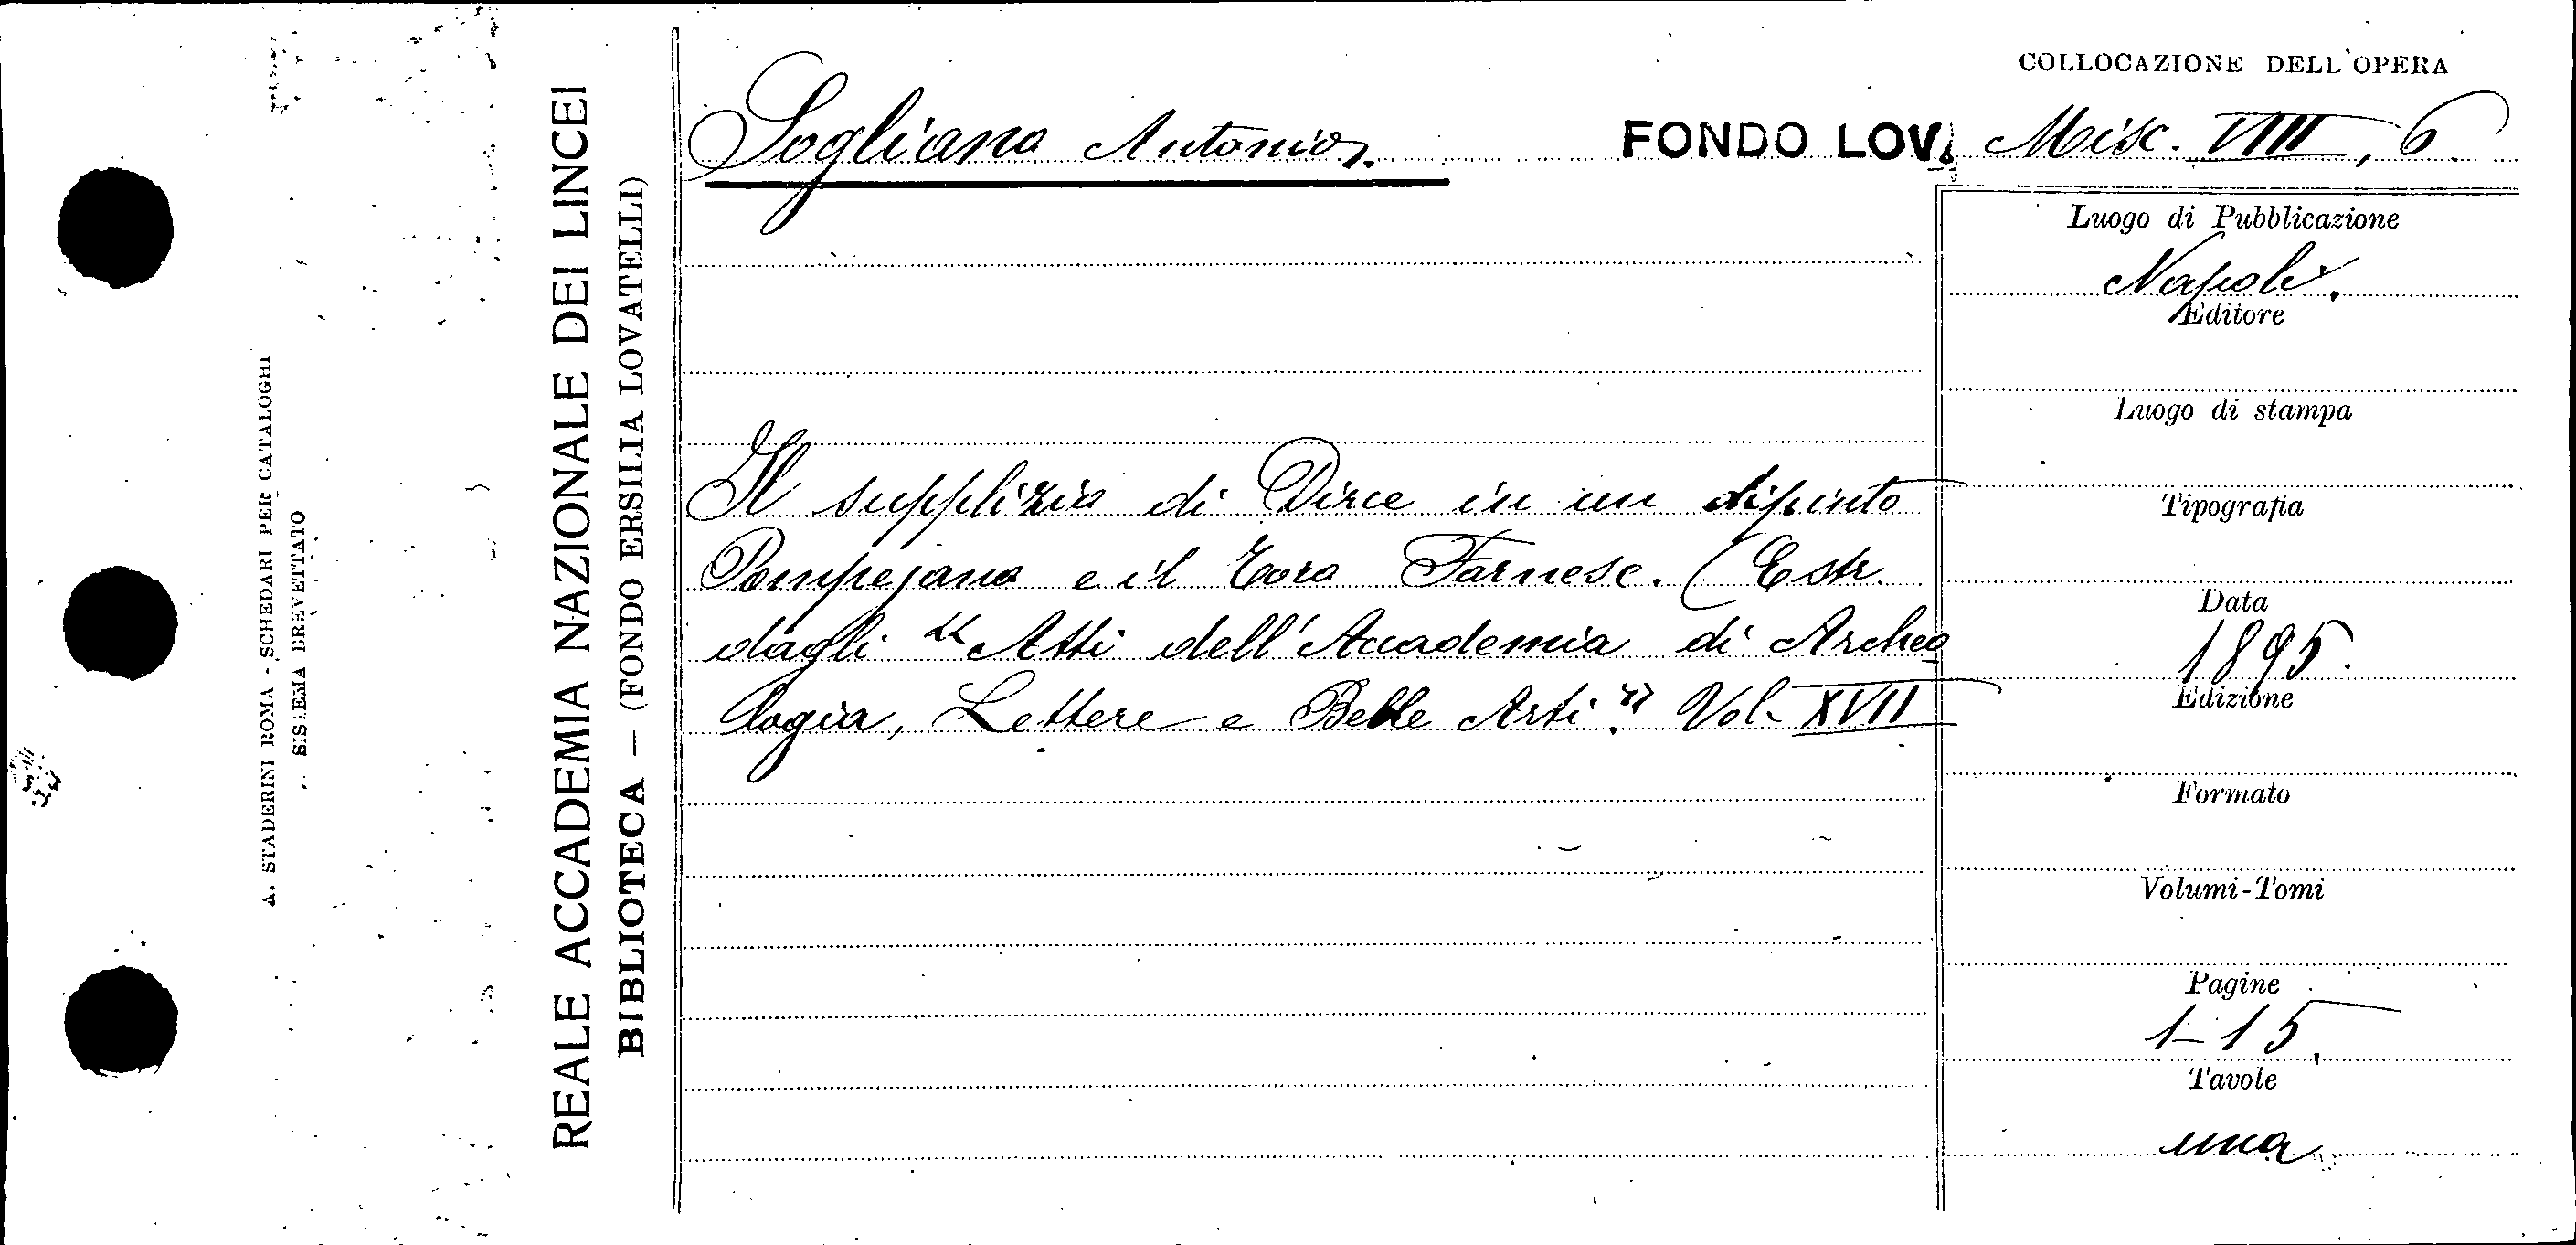 COLLOCAZIONE DELL'OPERA
Sogliano Antonio.
FONDO LOV. Misc. VIII, 6.
Luogo di Pubblicazione
Napoli.
Editore
Luogo di stampa
Tipografia
Data
1895.
Edizione
Formato
Volumi-Tomi
Pagine
1-15.
Tavole
una
Il supplizio di Dirce in un dipinto
Pompejano e il Toro Farnese. (Estr.
dagli "Atti dell'Accademia di Archeo
logia, Lettere e Belle Arti." Vol. XVII
REALE ACCADEMIA NAZIONALE DEI LINCEI
BIBLIOTECA — (FONDO ERSILIA LOVATELLI)
A. STADERINI ROMA - SCHEDARI PER CATALOGHI
SISTEMA BREVETTATO